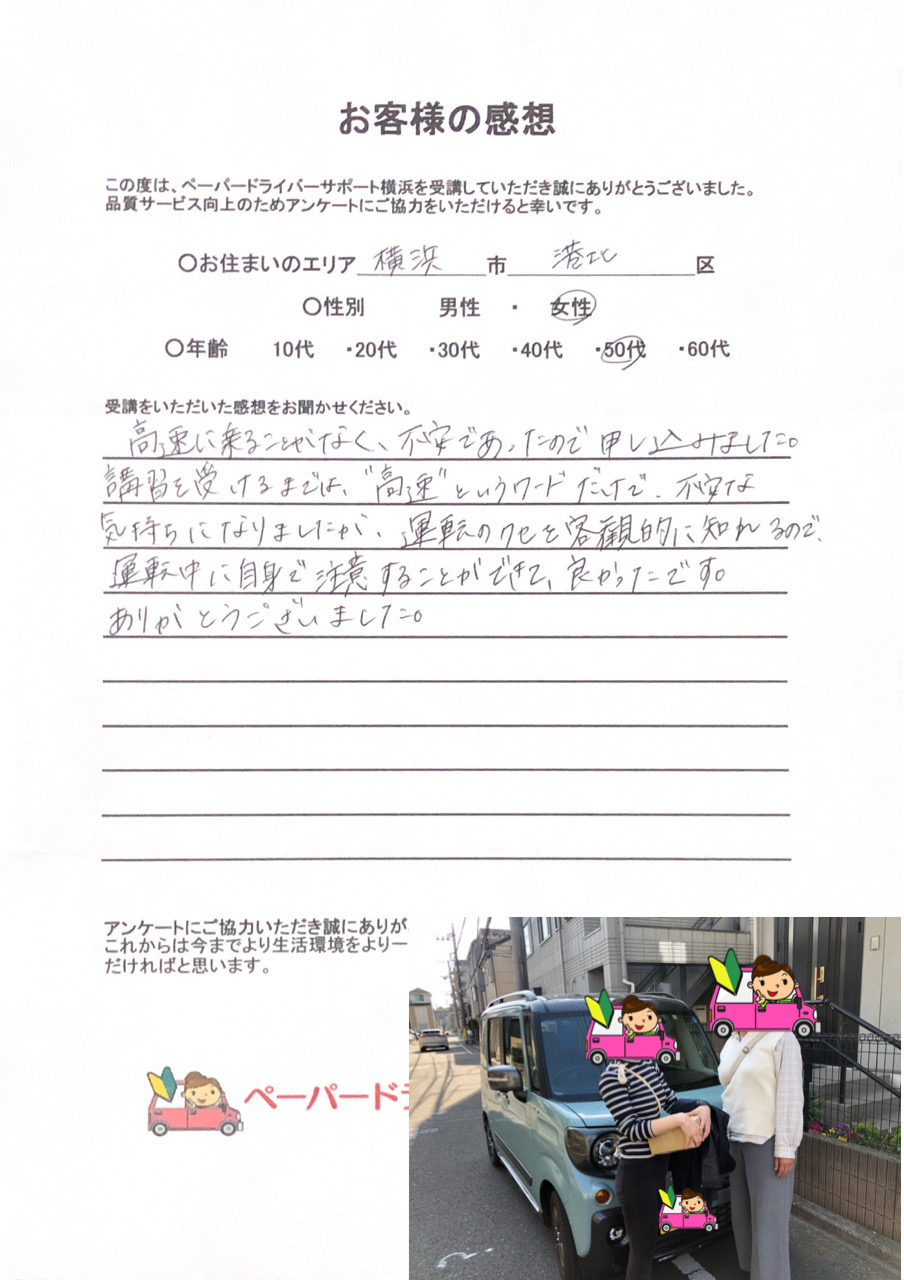 お客様の感想
この度は、ペーパードライバーサポート横浜を受講していただき誠にありがとうございました。
品質サービス向上のためアンケートにご協力をいただけると幸いです。
〇お住まいのエリア 横浜 市 港北 区
〇性別 男性 ・ 女性
〇年齢 10代 ・20代 ・30代 ・40代 ・50代 ・60代
受講をいただいた感想をお聞かせください。
高速に乗ることがなく、不安であったので申し込みました。
講習を受けるまでは、“高速”というワードだけで、不安な
気持ちになりましたが、運転のクセを客観的に知れるので、
運転中に自身で注意することができて、良かったです。
ありがとうございました。
アンケートにご協力いただき誠にありが
これからは今までより生活環境をより一
だければと思います。
ペーパードラ